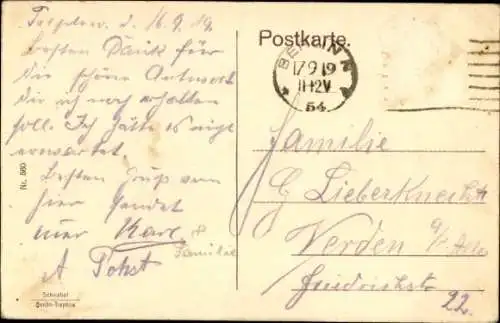 Treptow d. 16.9.19.
Besten Dank für
die schöne Antwort
die ich noch erhalten
soll. Ich hätte es nicht
erwartet.
Besten Gruß von
hier sendet
Karl
& Familie
A Pohst
Nr. 560
Schnabel
Berlin-Treptow
Postkarte.
BERLIN
17.9.19
11-12V
54
Familie
G Lieberknecht
Verden a/ Aller
Friedrichstr
22.